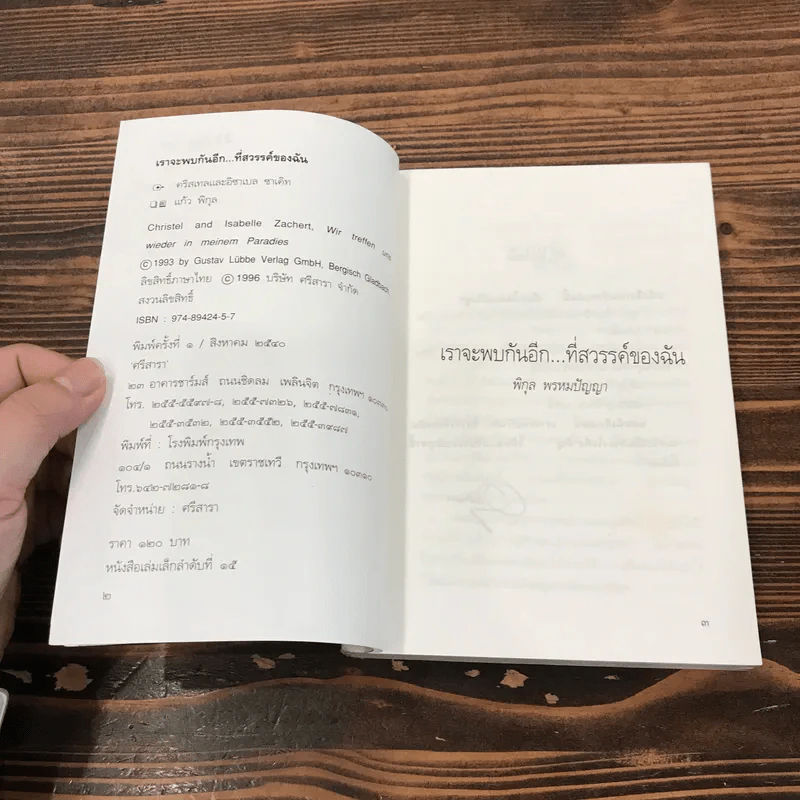 เราจะพบกันอีก...ที่สวรรค์ของฉัน
คริสเทลและอิซาเบล ซาเคิท
แก้ว พิกุล
Christel and Isabelle Zachert, Wir treffen uns
wieder in meinem Paradies
©1993 by Gustav Lübbe Verlag GmbH, Bergisch Gladbach
ลิขสิทธิ์ภาษาไทย ©1996 บริษัท ศรีสารา จำกัด
สงวนลิขสิทธิ์
ISBN : 974-89424-5-7
พิมพ์ครั้งที่ ๑ / สิงหาคม ๒๕๔๐
'ศรีสารา'
๒๓ อาคารชาร์มส์ ถนนชิดลม เพลินจิต กรุงเทพฯ ๑๐๓๓๐
โทร. ๒๕๕-๕๕๙๗-๘, ๒๕๕-๗๓๒๖, ๒๕๕-๗๘๓๑,
๒๕๕-๓๕๓๒, ๒๕๕-๓๕๕๒, ๒๕๕-๓๙๘๗
พิมพ์ที่ : โรงพิมพ์กรุงเทพ
๑๐๔/๑ ถนนรางน้ำ เขตราชเทวี กรุงเทพฯ ๑๐๓๑๐
โทร.๖๔๒-๗๒๘๑-๘
จัดจำหน่าย : ศรีสารา
ราคา ๑๒๐ บาท
หนังสือเล่มเล็กลำดับที่ ๑๕
๒
เราจะพบกันอีก...ที่สวรรค์ของฉัน
พิกุล พรหมปัญญา
๓